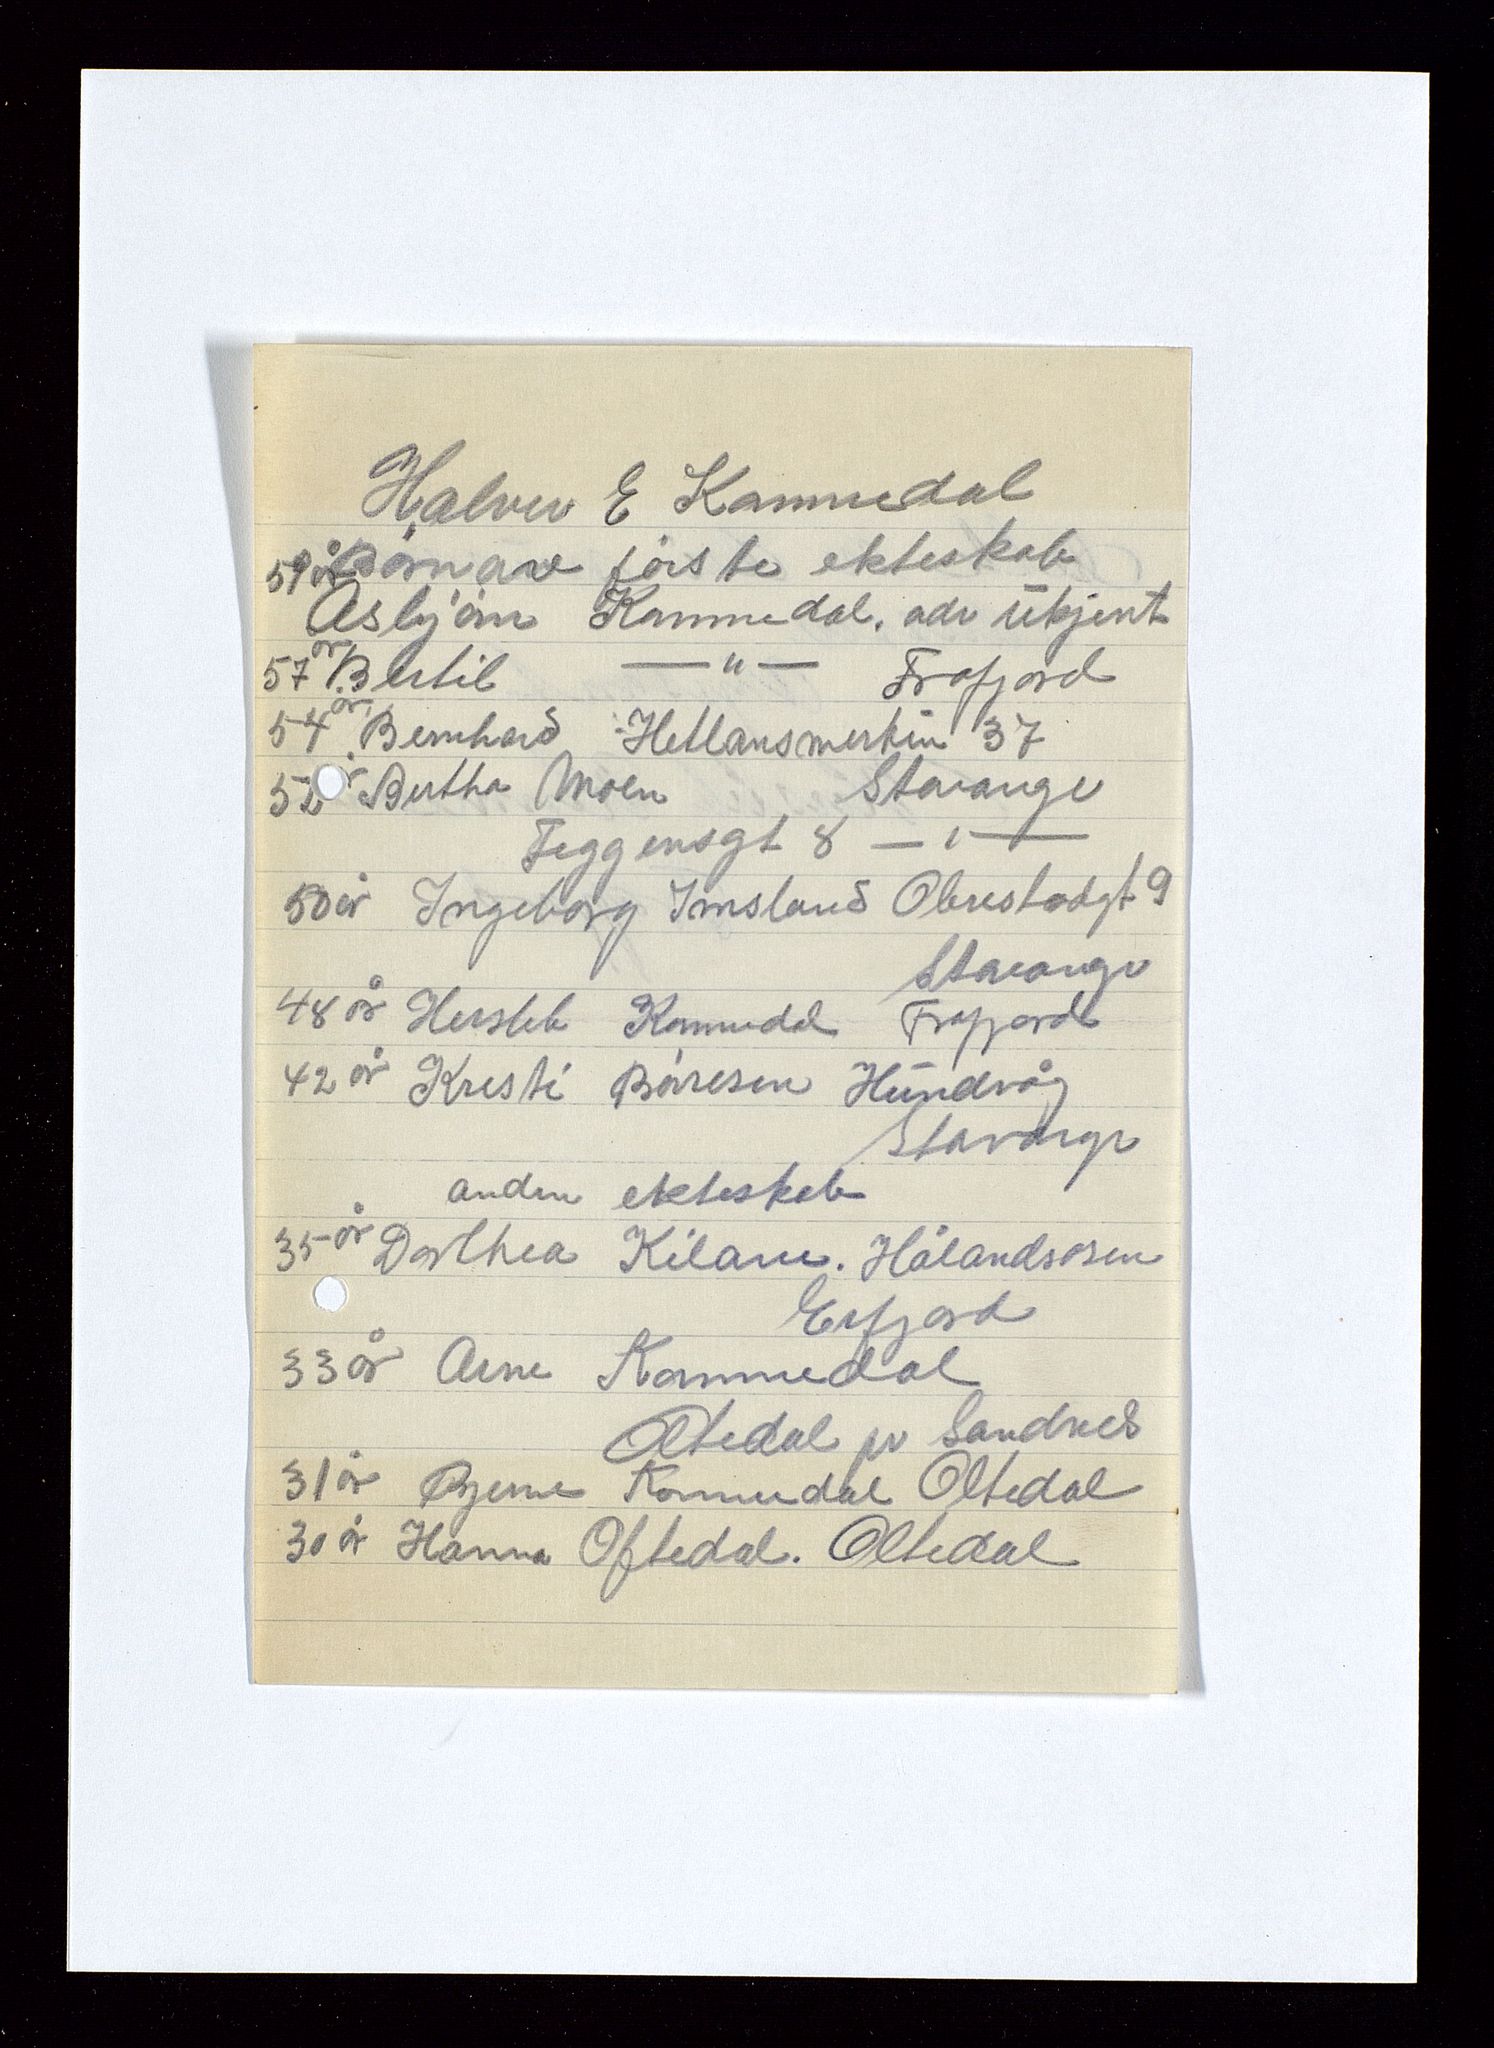 Halvor E Kommedal
59 år Börn av förste ekteskab
Asbjörn Kommedal. adr ukjent
57 år Bertil — " — Frafjord
54 år Bernhard Hetlansmerkin 37
52 år Bertha Moen Stavanger
Teggensgt 8 — " —
50 år Ingeborg Imsland Obrestadgt 9
Stavanger
48 år Hersleb Kommedal Frafjord
42 år Kristi Börresen Hundvåg
Stavanger
anden ekteskab
35 år Dorthea Kilane. Hålandsosen
Erfjord
33 år Arne Kommedal
Oltedal pr Sandnes
31 år Bjerne Kommedal Oltedal
30 år Hanna Oftedal. Oltedal